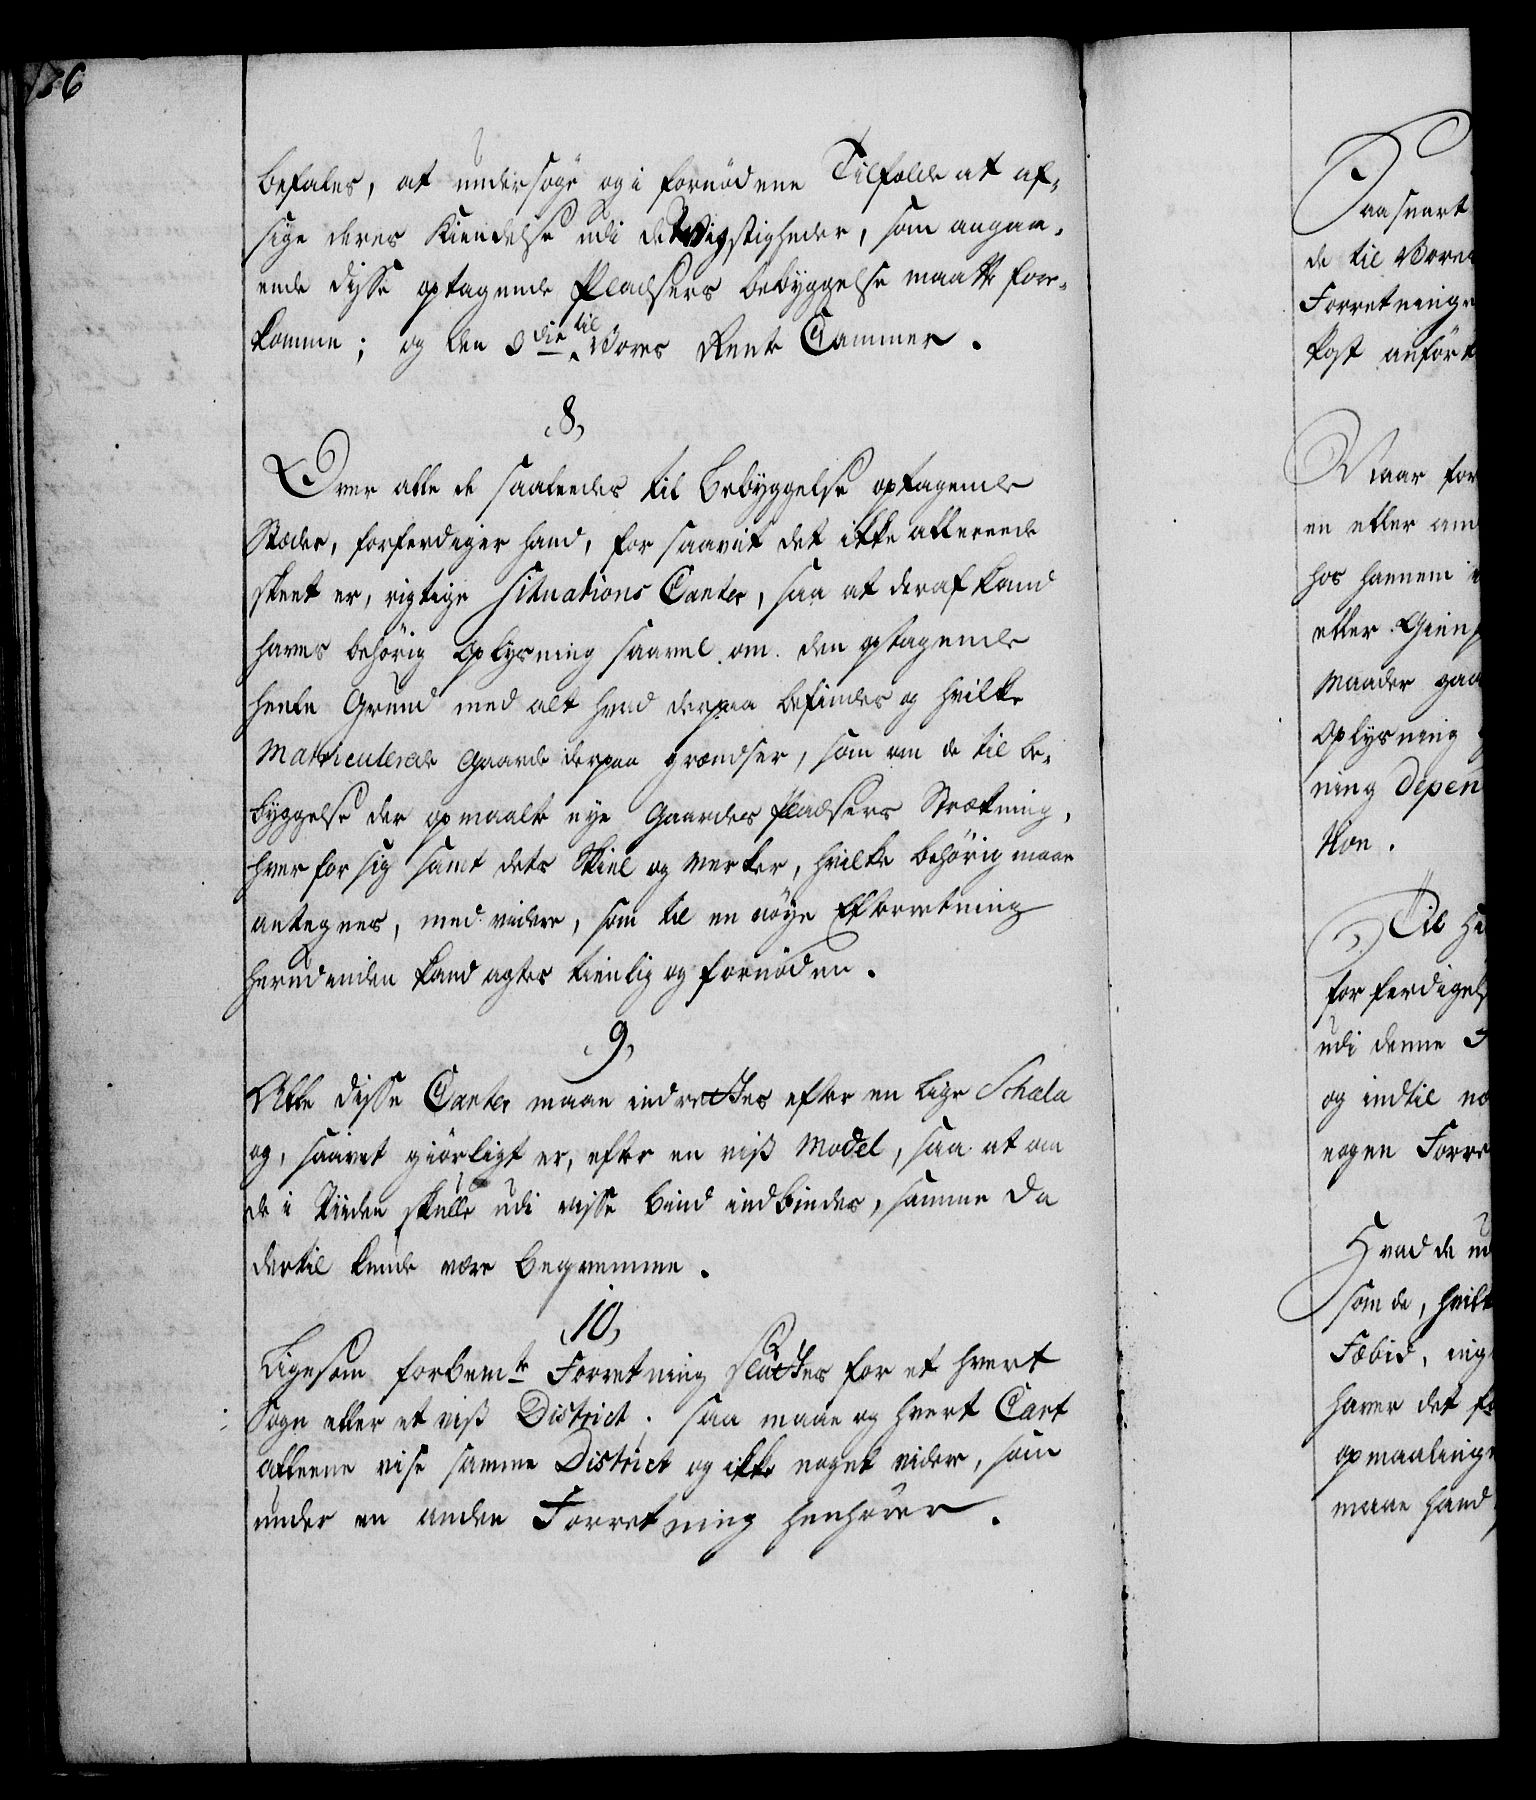 136
befales, at undersøge og i fornødene Tilfælde at af-
sige deres Kiendelse udi de Tvistigheder, som angaa-
ende disse optagende Pladsers bebyggelse maatte fore-
komme; og den 3die til Vores Rente Cammer.
8,
Over alle de saaledes til bebyggelse optagende
Stæder, forferdiger hand, for saavit det ikke allereede
skeet er, rigtige Situations Carter, saa at deraf kand
haves behørig Oplysning saavel om den optagende
heele Grund med alt hvad derpaa befindes og hvilke
Matriculerede Gaarde derpaa grændser, som om de til be-
byggelse der opmaalte nye Gaardes Pladsers Strækning,
hver for sig samt dets Skiel og Merker, hvilke behørig maae
antegnes, med videre, som til en nøye Efterretning
herudinden kand agtes tienlig og fornøden.
9,
Alle disse Carter maae indrettes efter en lige Schala
og, saavit giørligt er, efter en viß Model, saa at om
de i Tiiden skulle udi visse bind indbindes, samme da
dertil kunde være beqvemme.
10,
Ligesom forbemte Forretning sluttes for et hvert
Sogn eller et viß District; saa maae og hvert Cart
alleene vise samme District og ikke noget videre, som
under en anden Forretning henhører.
Saasnart
de til Vores
Forretninge
Post anført
Naar for
en eller an
hos hannem
eller Gien
Maader gaa
Oplysning
ning depen
tion.
Til
forferdigels
udi denne
og indtil
nogen Forre
Hvad de ud
som de, hvilk
Fæbid,
haver det
opmaalinge
maae hand